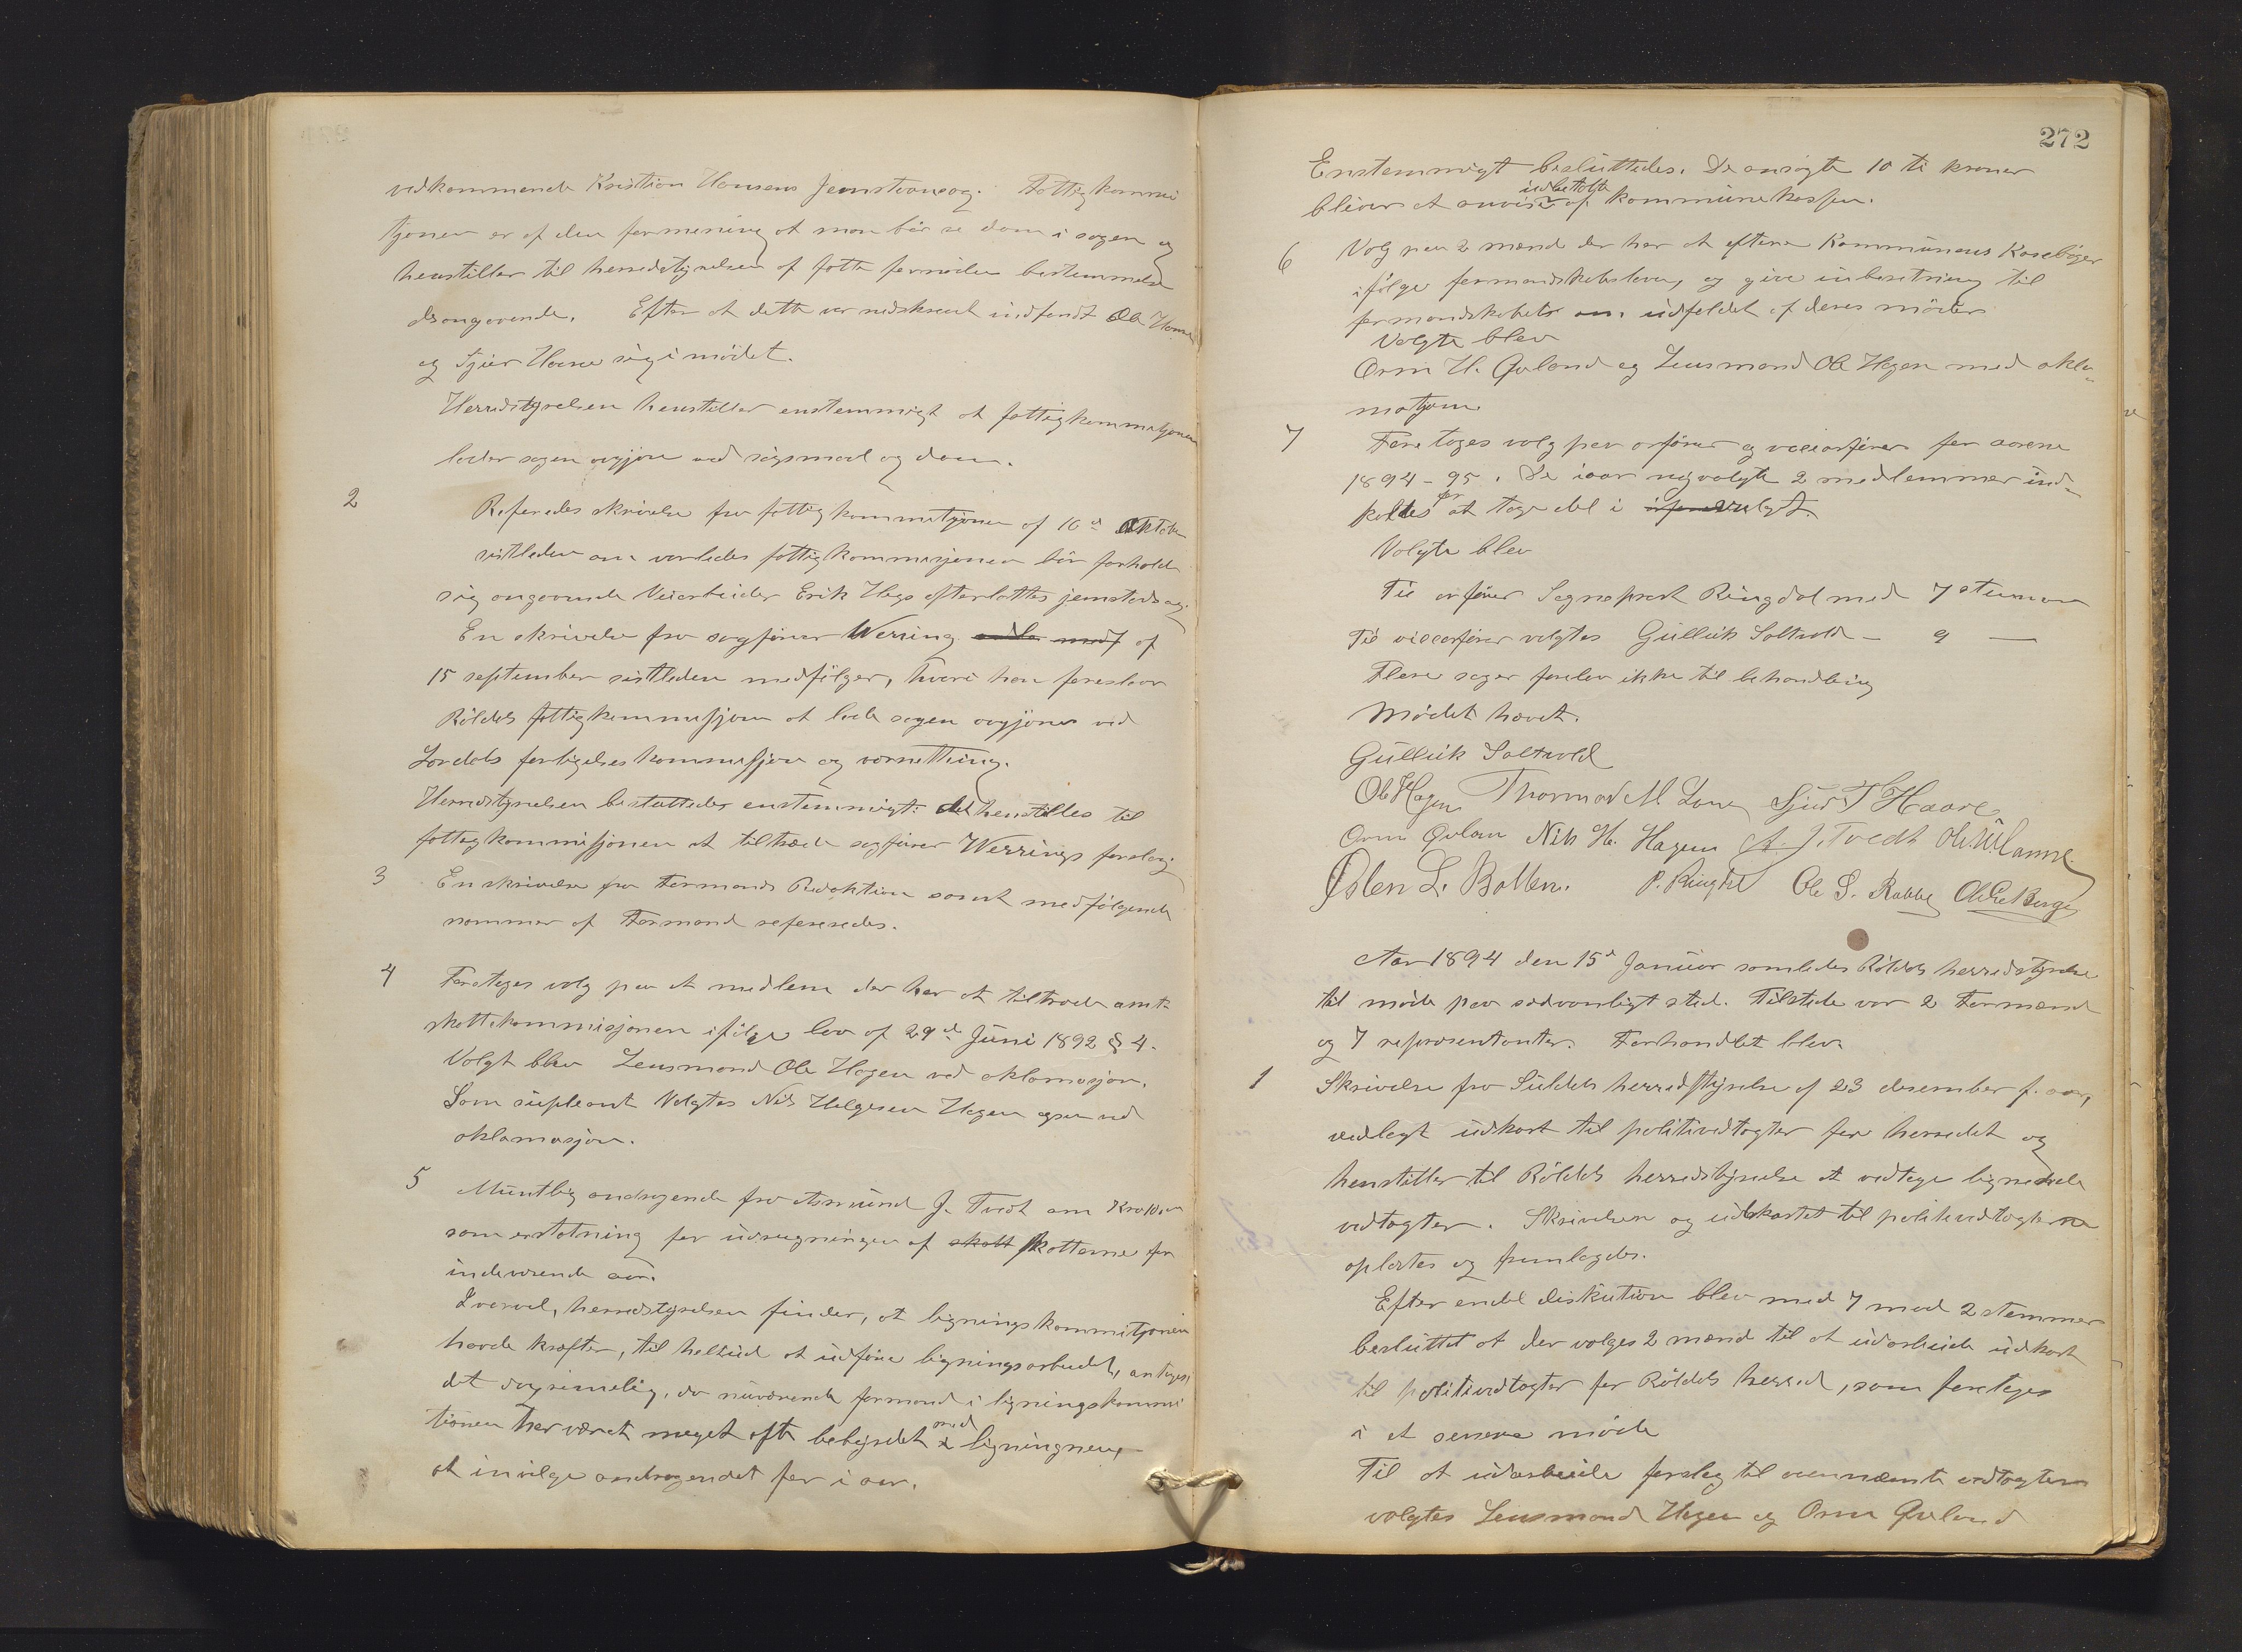 vedkommende Kristian Hansens jemstavnsag. Fattigkommi
tjonen er af den formening at man bör se dom i sagen og
henstiller til herredstyrelsen at fatte fornöden bestemmelse
desangaaende. Efter at dette var nedskrevet indfandt Ole
og Sjur Haare sig i mödet.
Herredstyrelsen henstiller enstemmigt at fattigkommitjonen
lader sagen avgjöre ved sögsmaal og dom.
2
Referedes skrivelse fra fattigkommitjonen af 16de Oktober
sistleden om vorledes fattigkommisjonen bör forholde
sig angaaende Veiarbeider Erik Hegs efterlattes jemstedsag.
En skrivelse fra sagförer Werring af
15 september sistleden medfölger, hvori han foreslaar
Röldals fattigkommisjon at lade sagen avgjöres ved
Sovdals forligelseskommisjon og varnetting.
Herredstyrelsen besluttedes enstemmigt: det henstilles til
fattigkommisjonen at tiltræde sagförer Werrings forslag.
3 En skrivelse fra Formands Redaktion samt medfölgende
nommer af Formand refereredes.
4 Foretoges valg paa et medlem der har at tiltræde amts
skattekommisjonen ifölge lov af 29de Juni 1892 § 4.
Valgt blev Lensmand Ole Hagen ved aklamasjon.
Som supleant Valgtes Nils Helgesen Hagen ogsaa ved
aklamasjon.
5 Muntlig andragende fra Asmund J. Tvedt om Kro 10,00
som erstatning for udregningen af skatt skatterne for
indeværende aar.
herredstyrelsen finder, at ligningskommitjonen
havde kræfter, til heltud at udföre ligningsarbeidet, antages
det dog rimelig, da nuværende formand i ligningskommi
tionen har været meget ofte bebyrdet med ligningnen,
at invilge andragendet for i aar.
272
Enstemmigt besluttedes. De ansögte 10 ti kroner
bliver at anvise udbetalte af kommunekassen.
6 Valg paa 2 mænd der har at eftese Kommunens Kaseböger
ifölge formandskabsloven, og give inberetning til
formandskabet om udfaldet af deres möder
Valgte blev
Orm H. Qvaland og Lensmand Ole Hagen med akla-
matjon.
7 Foretoges valg paa orförer og viceorförer for aarene
1894-95. De iaar nyvalgte 2 medlemmer ind-
kaldes for at tage del i valgt.
Valgte blev
Til orförer Sogneprest Ringdal med 7 stemmer
Til viceorförer valgtes Gullik Saltvold - 9 —
Flere sager forelaa ikke til behandling
Mödet hævet.
Gullik Saltvold
Ole Hagen Thormod M. Lone Sjur T Haare
Orm Qvalan Nils H. Hagen A. J. Tvedt
Østen L. Botten. P. Ringdal Ole S. Rabbe
Aar 1894 den 15de Januar samledes Röldals herredstyrelse
til möde paa sædvanligt sted. Tilstede var 2 Formænd
og 7 representanter. Forhandlet blev.
1 Skrivelse fra Suldals herredstyrelse af 23 desember f. aar,
vedlagt udkast til politivedtægter for herredet og
henstiller til Röldals herredstyrelse at vedtage lignende
vedtægter. Skrivelsen og udkastet til politivedtægterne
oplæstes og fremlagdes.
Efter endel diskution blev med 7 mod 2 stemmer
besluttet at der vælges 2 mænd til at udarbeide udkast
til politivedtægter for Röldals herred, som foretages
i et senere möde
Til at udarbeide forslag til ovennæmte vedtægter
valgtes Lensmand Hagen og Orm Qvaland